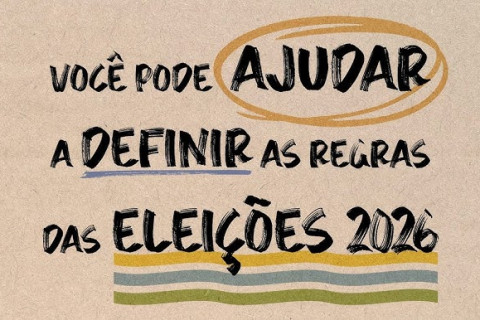 VOCÊ PODE AJUDAR
A DEFINIR AS REGRAS
DAS ELEIÇÕES 2026